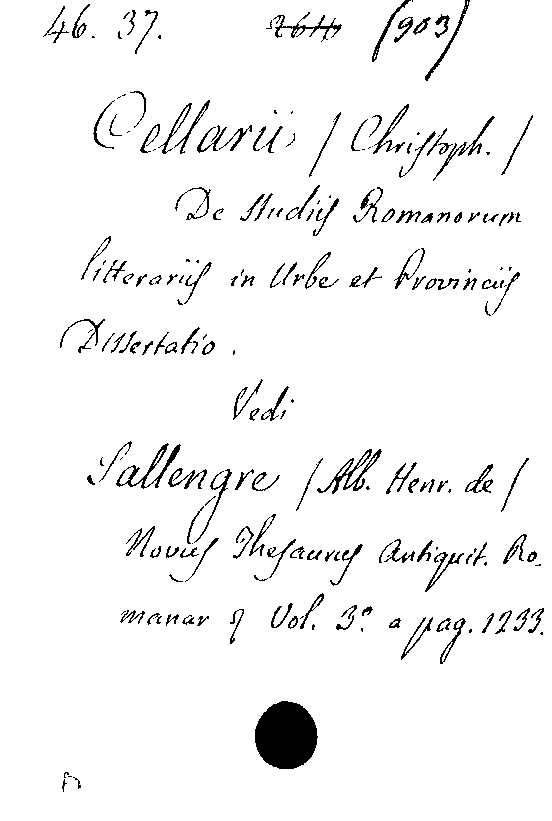 46. 37. (903)
Cellarii / Christoph. /
De Studiis Romanorum
litterariis in Urbe et Provinciis
Dissertatio.
Vedi
Sallengre / Alb. Henr. de /
Novus Thesaurus Antiquit. Ro-
manar Vol. 3.º a pag. 1233.